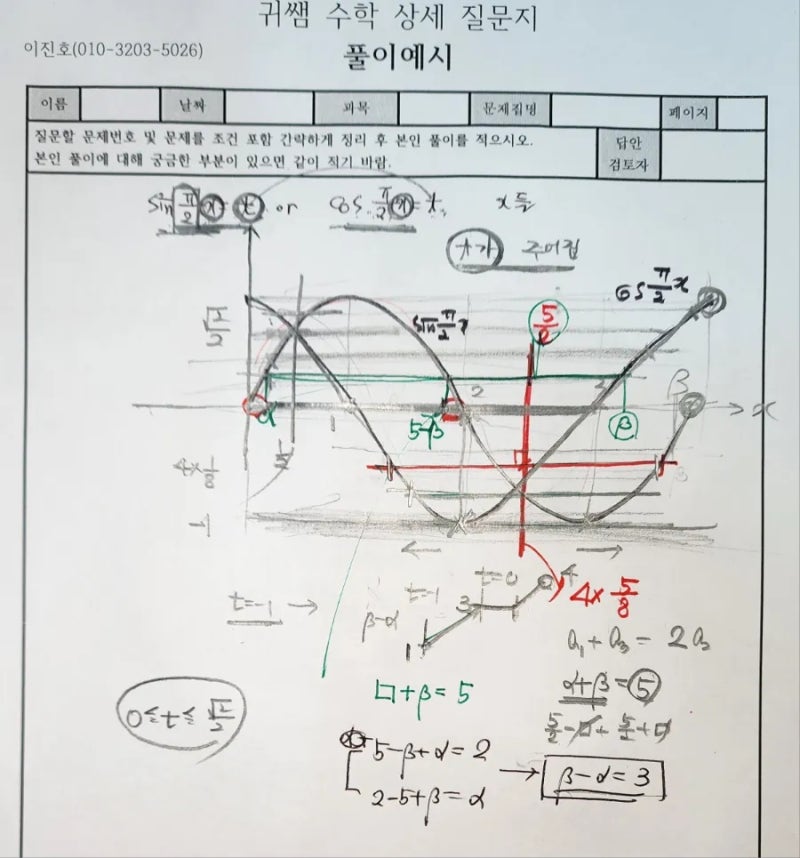 귀쌤 수학 상세 질문지
이진호(010-3203-5026)
풀이예시
이름 날짜 과목 문제집명 페이지
질문할 문제번호 및 문제를 조건 포함 간략하게 정리 후 본인 풀이를 적으시오.
본인 풀이에 대해 궁금한 부분이 있으면 같이 적기 바람.
답안
검토자
sin π/2 x = t or cos π/2 x = t, x들
t가 주어짐
√2/2 sin π/2 x 5/2 cos π/2 x
α 1 5-β 2 β x
4×1/8 1/2
-1
t=-1 → β-α 1 t=-1 3 t=0 4 4×5/8
a₁+a₃ = 2a₂
□+β=5 α+β=5
0≤t≤√2/2 5/2-□+5/2+□
5-β+α=2 → β-α=3
2-5+β=α